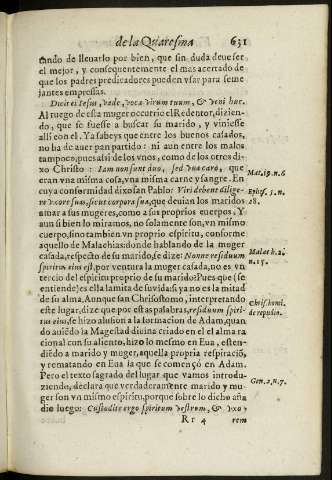 de la Quaresma 631
tando de lleuarlo por bien, que sin duda deue ser
el mejor, y consequentemente el mas acertado de
que los padres predicadores pueden vsar para seme
jantes empressas.
Dicit ei Iesus, vade, voca virum tuum, & veni huc.
Al ruego de esta muger occurrio el Redentor, dizien-
do, que se fuesse a buscar su marido, y viniesse
alli con el. Ya sabeys que entre los buenos casados,
no ha de auer pan partido: ni aun entre los malos
tampoco; pues assi de los vnos, como de los otros di-
xo Christo: Iam non sunt duo, sed vna caro, que
eran vna misma cosa, vna misma carne y sangre. En
cuya conformidad dixo san Pablo: Viri debent dilige-
re vxores suas, sicut corpora sua, que deuian los maridos
amar a sus mugeres, como a sus proprios cuerpos. Y
aun si bien lo miramos, no solamente son vn mismo
cuerpo, sino tambien vn proprio espiritu, conforme
aquello de Malachias: donde hablando de la muger
casada, respecto de su marido, se dize: Nonne residuum
spiritus eius est, por ventura la muger casada, no es vn
tercio del espiritu proprio de su marido? Pues que (se
entiende) es ella la mitad de su vida: si ya no es la mitad
de su alma. Aunque san Chrisostomo, interpretando
este lugar, dize que por estas palabras, residuum spiri-
tus eius, se hizo alusion a la formacion de Adam, quan
do auiēdo la Magestad diuina criado en el el alma ra
cional con su aliento, hizo lo mesmo en Eua, esten-
diēdo a marido y muger, aquella propria respiraciō,
y rematando en Eua la que se començò en Adam.
Pero el texto sagrado del lugar que vamos introdu-
ziendo, declara que verdaderamente marido y mu-
ger son vn mismo espiritu, porque sobre lo dicho aña
die luego: Custodite ergo spiritum vestrum, & vxo-
Rr 4 rem
Mat. 19. n. 6
Ephes. 5. n.
28.
Malach. 2.
n. 15.
Chris. homi.
de repudio.
Gen. 2. n. 7.